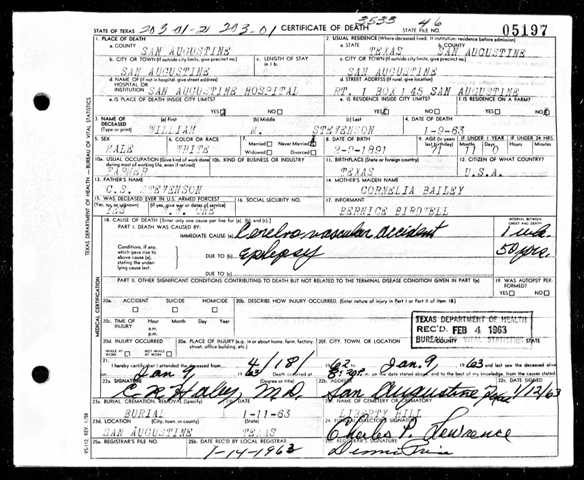 3533 46
STATE OF TEXAS 203 01-21 203.01 CERTIFICATE OF DEATH STATE FILE NO. 05197
1. PLACE OF DEATH 2. USUAL RESIDENCE (Where deceased lived. If institution: residence before admission)
a. COUNTY a. STATE b. COUNTY
SAN AUGUSTINE TEXAS SAN AUGUSTINE
b. CITY OR TOWN (If outside city limits, give precinct no.) c. LENGTH OF STAY c. CITY OR TOWN (If outside city limits, give precinct no.)
SAN AUGUSTINE SAN AUGUSTINE
d. NAME OF (If not in hospital, give street address) d. STREET ADDRESS (If rural, give location)
HOSPITAL OR INSTITUTION SAN AUGUSTINE HOSPITAL RT. 1 BOX 145 SAN AUGUSTINE
e. IS PLACE OF DEATH INSIDE CITY LIMITS? e. IS RESIDENCE INSIDE CITY LIMITS? f. IS RESIDENCE ON A FARM?
YES NO YES NO YES NO
3. NAME OF DECEASED (a) First (b) Middle (c) Last 4. DATE OF DEATH
(Type or print) WILLIAM STEVENSON 1-9-63
5. SEX 6. COLOR OR RACE 7. Married Never Married 8. DATE OF BIRTH 9. AGE IF UNDER 1 YEAR IF UNDER 24 HRS.
MALE WHITE Widowed Divorced 2-9-1891 71 11 0
10a. USUAL OCCUPATION (Give kind of work done 10b. KIND OF BUSINESS OR INDUSTRY 11. BIRTHPLACE (State or foreign country) 12. CITIZEN OF WHAT COUNTRY?
FARMER TEXAS U.S.A.
13. FATHER'S NAME 14. MOTHER'S MAIDEN NAME
C.S. STEVENSON CORNELIA BAILEY
15. WAS DECEASED EVER IN U.S. ARMED FORCES? 16. SOCIAL SECURITY NO. 17. INFORMANT
YES BERNICE BIRDWELL
18. CAUSE OF DEATH (Enter only one cause per line for (a), (b), and (c).) INTERVAL BETWEEN ONSET AND DEATH
PART I. DEATH WAS CAUSED BY:
IMMEDIATE CAUSE (a) Cerebro vascular accident 1 wk
Conditions, if any, which gave rise to above cause (a), stating the underlying cause last. DUE TO (b) Epilepsy 50 yrs.
DUE TO (c)
PART II. OTHER SIGNIFICANT CONDITIONS CONTRIBUTING TO DEATH BUT NOT RELATED TO THE TERMINAL DISEASE CONDITION GIVEN IN PART I(a) 19. WAS AUTOPSY PERFORMED?
YES NO
20a. ACCIDENT SUICIDE HOMICIDE 20b. DESCRIBE HOW INJURY OCCURRED. (Enter nature of injury in Part I or Part II of item 18.)
20c. TIME OF INJURY Hour Month Day Year
a.m.
p.m.
TEXAS DEPARTMENT OF HEALTH
REC'D FEB 4 1963
BUREAU OF VITAL STATISTICS
20d. INJURY OCCURRED 20e. PLACE OF INJURY (e.g. in or about home, farm, factory, street, office building, etc.) 20f. CITY, TOWN, OR LOCATION COUNTY STATE
WHILE AT WORK NOT WHILE AT WORK
21. I hereby certify that I attended the deceased from 4/18/ 62 Jan. 9 63
22a. SIGNATURE 22b. ADDRESS 22c. DATE SIGNED
C R Haley M.D. San Augustine Texas 1/12/63
23a. BURIAL, CREMATION, REMOVAL (Specify) 23b. DATE 23c. NAME OF CEMETERY OR CREMATORY
BURIAL 1-11-63 LIBERTY HILL
23d. LOCATION (City, town, or county) (State)
SAN AUGUSTINE TEXAS Charles P. Lawrence
25a. REGISTRAR'S FILE NO. 25b. DATE REC'D BY LOCAL REGISTRAR
1-14-1963
TEXAS DEPARTMENT OF HEALTH — BUREAU OF VITAL STATISTICS
MEDICAL CERTIFICATION